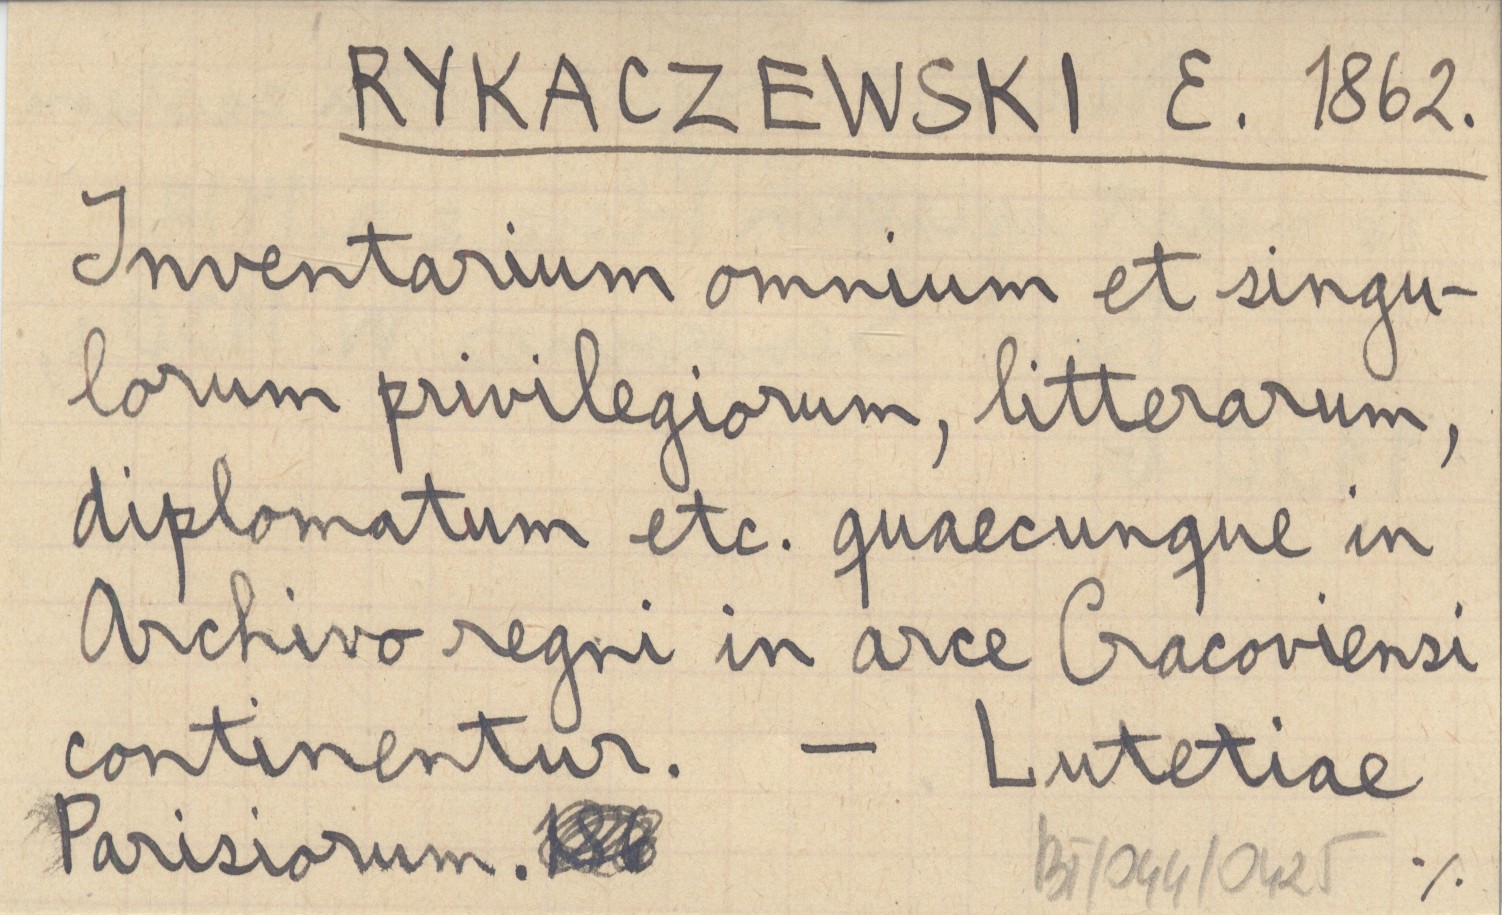 RYKACZEWSKI E. 1862.
Inventarium omnium et singu-
lorum privilegiorum, litterarum,
diplomatum etc. quaecunque in
Archivo regni in arce Cracoviensi
continentur. — Lutetiae
Parisiorum.
BI/044/0425 ./.